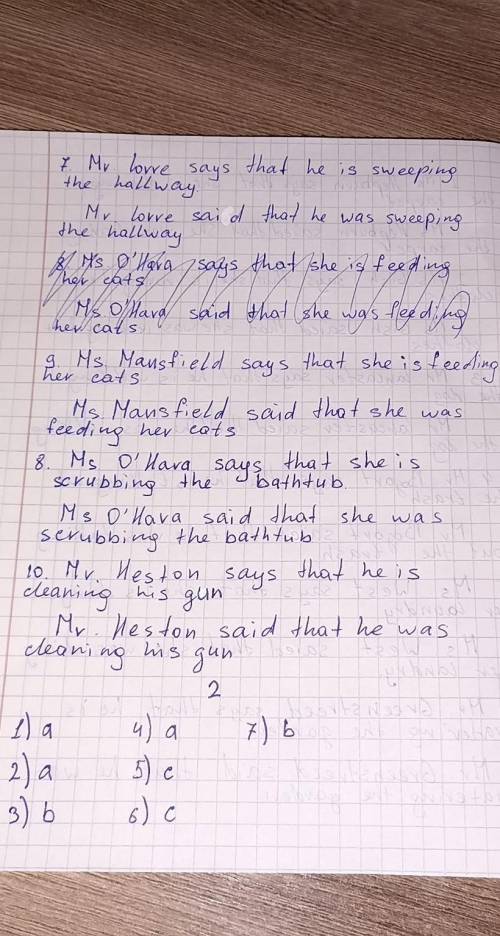 7. Mr Lorre says that he is sweeping
the hallway.
Mr. Lorre said that he was sweeping
the hallway
8. Ms O'Hara says that she is feeding
her cats
Ms O'Hara said that she was feeding
her cats
9. Ms. Mansfield says that she is feeding
her cats
Ms. Mansfield said that she was
feeding her cats
8. Ms O'Hara says that she is
scrubbing the bathtub.
Ms O'Hara said that she was
scrubbing the bathtub
10. Mr. Heston says that he is
cleaning his gun
Mr. Heston said that he was
cleaning his gun
2
1) a 4) a 7) b
2) a 5) c
3) b 6) c